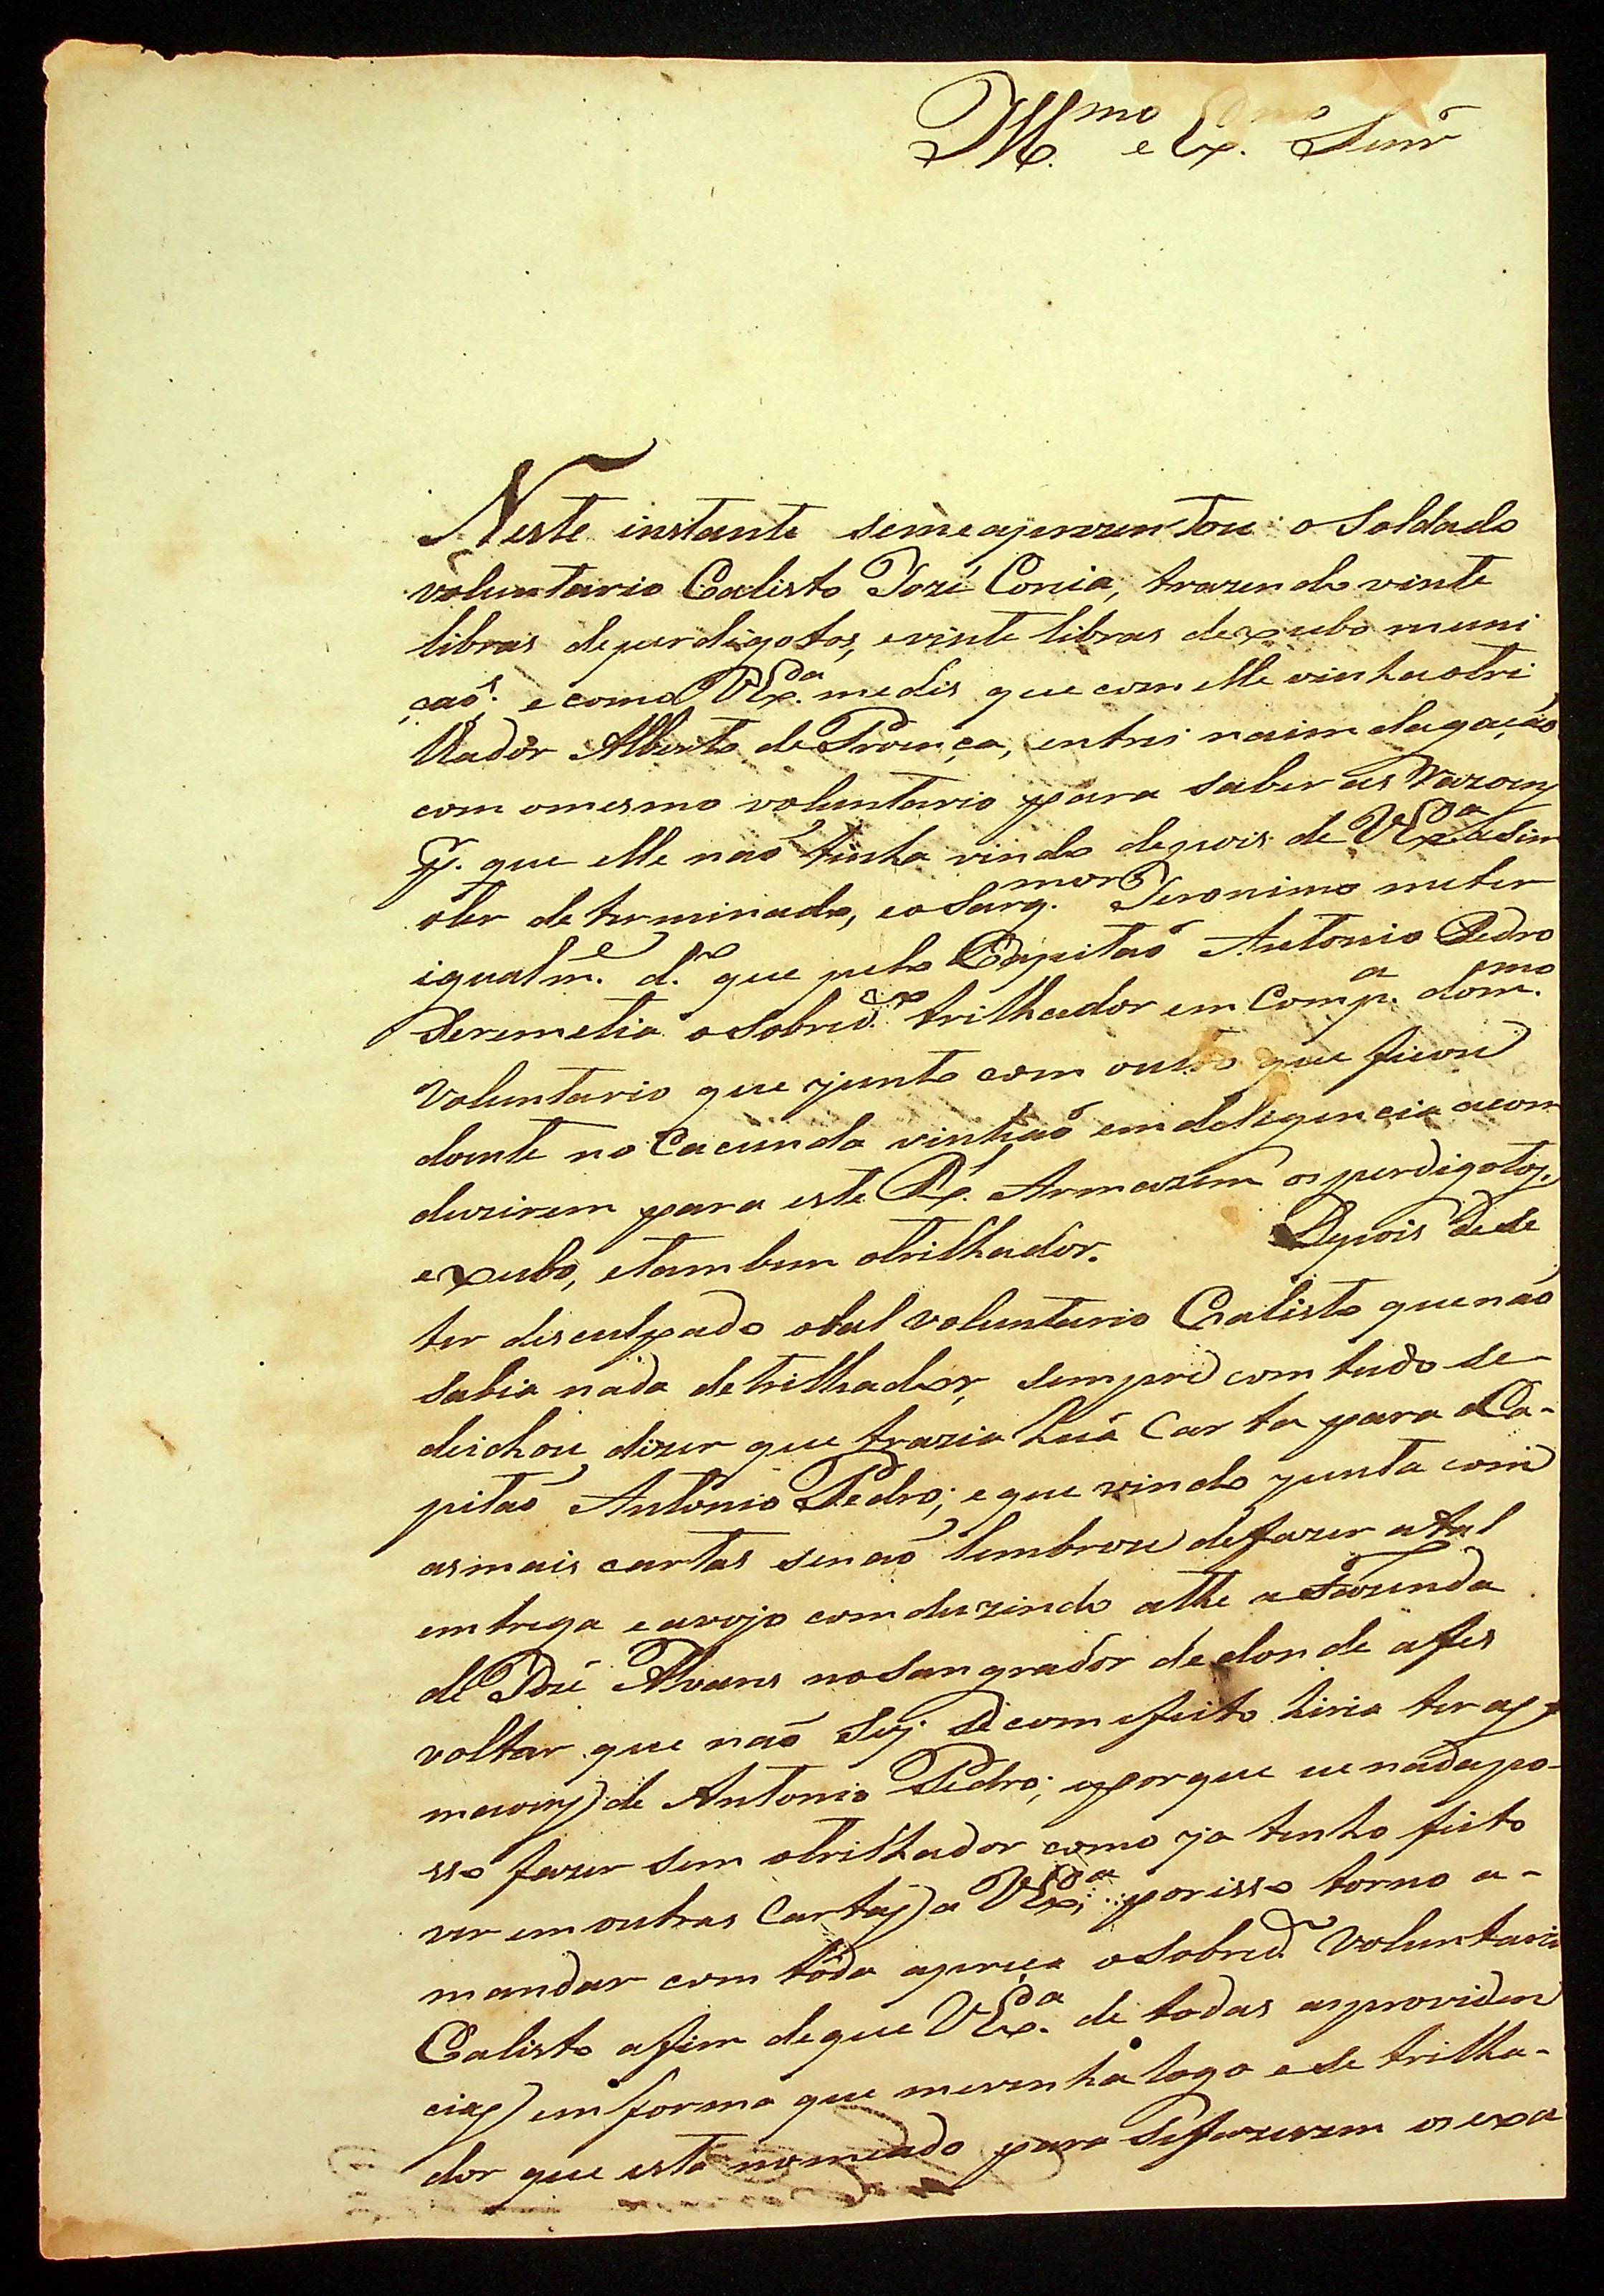 Ill.mo e Ex.mo Senr
Neste instante semeaprezentou o Soldado
voluntario Calisto Jozé Correia, trazendo vinte
libras deperdigotos, evinte libras dexubo muni
çaõ: e como VEx.a medis que com elle vinha otri
lhador Alberto de Proença, entrei naindagaçaõ
com omesmo voluntario para saber as Razoens
p. que elle naõ tinha vindo depois de VEx.a asim
oter determinado, eo Sarg.mor Jeronimo meter
igualm.e d.o que pelo Capitaõ Antonio Pedro
Seremetia o Sobred.o trilhador em Comp.a dom.mo
voluntario que junto com outro que ficou
doente no Cacunda vinhaõ em deligencia acom
duzirem para este R. Armazem os perdigotos,
exubo, etambem otrilhador. Depois dese
ter desculpado otal voluntario Calisto quenaõ
sabia nada detrilhador, sempre com tudo se-
deichou dizer que trazia huã Carta para o Ca-
pitaõ Antonio Pedro; e que vindo junta com
asmais cartas senaõ lembrou defazer atal
emtrega e afojo comduzindo athe a Fazenda
de Jozé Alvares no Sangrador de donde afes
voltar que naõ Sej Secomefeito hiria ter as
maons de Antonio Pedro; eporque eu nadapo-
sso fazer sem otrilhador como ja tenho feito
ver em outras Cartas a VEx.a; porisso torno a-
mandar com tôda apreça o Sobred.o Voluntario
Calisto afim deque VEx.a de todas asproviden
cias em forma que mevenha logo ese trilha-
dor que está nomeado para Sefazerem os exa